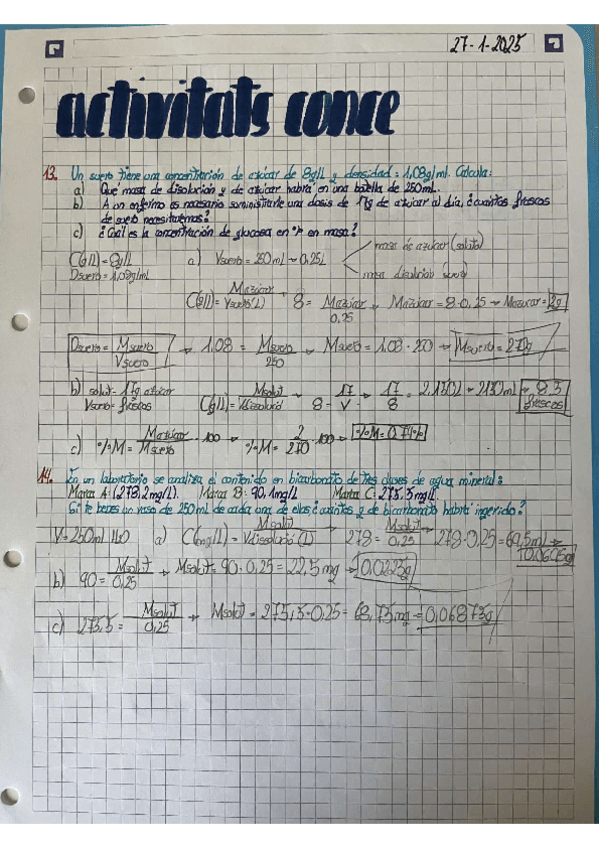 27-1-2025
activitats conce
13. Un suero tiene una concentración de azúcar de 8g/L y densidad = 1,08g/ml. Calcula:
a) Qué masa de disolución y de azúcar habrá en una botella de 250ml.
b) A un enfermo es necesario suministrarle una dosis de 17g de azúcar al día, ¿cuántos frascos
de suero necesitaremos?
c) ¿Cuál es la concentración de glucosa en % en masa?
C(g/L) = 8g/L a) Vsuero = 250ml → 0,25L masa de azúcar (soluto)
Dsuero = 1,08g/ml masa disolució (suero)
C(g/L) = Mazúcar / Vsuero(L) 8 = Mazúcar / 0,25 → Mazúcar = 8·0,25 → Mazúcar = 2g
Dsuero = Msuero / Vsuero → 1,08 = Msuero / 250 → Msuero = 1,08·250 → Msuero = 270g
b) solut = 17g azúcar C(g/L) = Msolut / Vdissolució 8 = 17 / V → 17 / 8 = 2,130L → 2130ml → 8,5 frascos
Vsuero = frascos
c) %M = Mazúcar / Msuero · 100 → %M = 2 / 270 · 100 → %M = 0,74%
14. En un laboratorio se analiza el contenido en bicarbonato de tres clases de agua mineral:
Marca A: (278,2mg/L). Marca B: 90,1mg/L Marca C: 275,5mg/L.
Si te bebes un vaso de 250ml de cada una de ellas ¿cuántos g de bicarbonato habrá ingerido?
V = 250ml a) C(mg/L) = Msolut / Vdissolució (L) 278 = Msolut / 0,25 → 278·0,25 = 69,5ml →
b) 90 = Msolut / 0,25 → Msolut = 90·0,25 = 22,5mg → 0,0225g
c) 275,5 = Msolut / 0,25 → Msolut = 275,5·0,25 = 68,75mg = 0,06875g